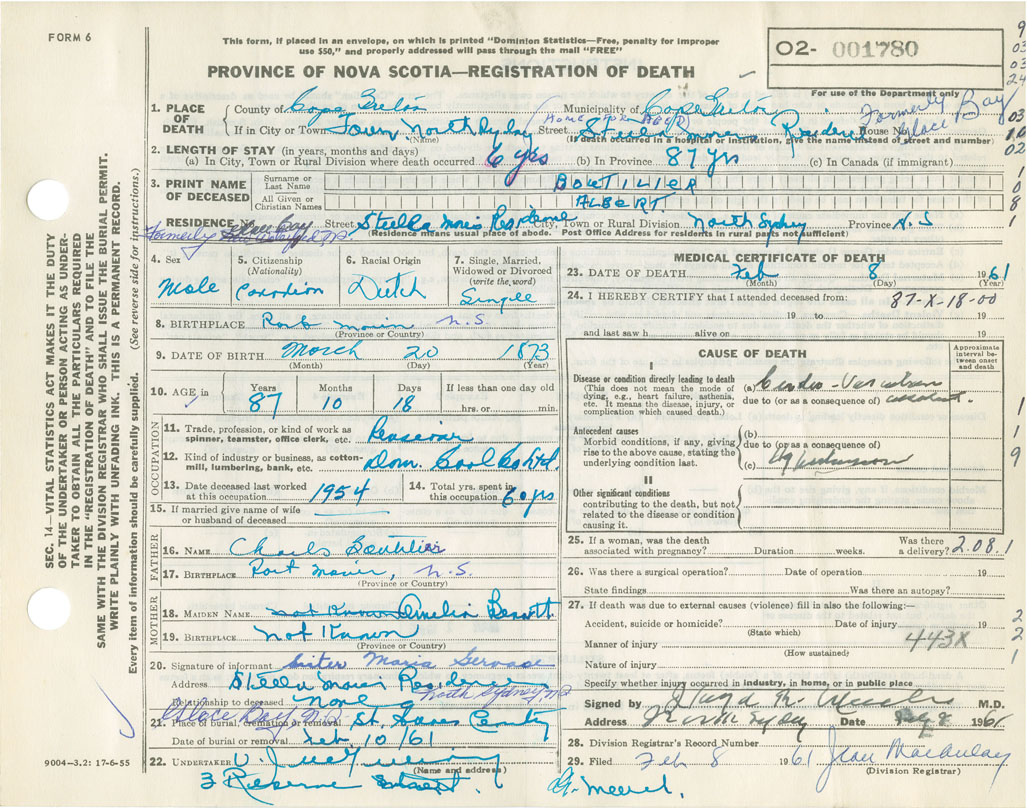 FORM 6
This form, if placed in an envelope, on which is printed "Dominion Statistics—Free, penalty for improper
use $50," and properly addressed will pass through the mail "FREE"
PROVINCE OF NOVA SCOTIA—REGISTRATION OF DEATH
02- 001780
For use of the Department only
9
03
03
24
03
10
02
1
0
8
1
1. PLACE OF DEATH
County of Cape Breton Municipality of Cape Breton
If in City or Town Town North Sydney Street HOME FOR AGED Stella Maris Residence House No. Formerly Glace Bay
(Name) (If death occurred in a hospital or institution, give the name instead of street and number)
2. LENGTH OF STAY (in years, months and days)
(a) In City, Town or Rural Division where death occurred 6 yrs (b) In Province 87 yrs (c) In Canada (if immigrant)
3. PRINT NAME OF DECEASED
Surname or Last Name BOUTILIER
All Given or Christian Names ALBERT
RESIDENCE No. Street Stella Maris Residence City, Town or Rural Division North Sydney Province N.S
Formerly (Residence means usual place of abode. Post Office Address for residents in rural parts not sufficient)
4. Sex
Male
5. Citizenship
(Nationality)
Canadian
6. Racial Origin
Dutch
7. Single, Married, Widowed or Divorced
(write the word)
Single
8. BIRTHPLACE Port Morien N.S.
(Province or Country)
9. DATE OF BIRTH March 20 1873
(Month) (Day) (Year)
10. AGE in
Years Months Days If less than one day old
87 10 18 hrs. or min.
OCCUPATION
11. Trade, profession, or kind of work as
spinner, teamster, office clerk, etc. Pensioner
12. Kind of industry or business, as cotton-
mill, lumbering, bank, etc. Dom. Coal Co Ltd.
13. Date deceased last worked
at this occupation 1954
14. Total yrs. spent in
this occupation 60 yrs
15. If married give name of wife
or husband of deceased
FATHER
16. NAME Charles Boutilier
17. BIRTHPLACE Port Morien, N.S.
(Province or Country)
MOTHER
18. MAIDEN NAME not Known Amelia
19. BIRTHPLACE Not Known
(Province or Country)
20. Signature of informant Sister Maria Gervase
Address Stella Maris Residence
North Sydney N.S.
Relationship to deceased None
Glace Bay, N.S.
21. Place of burial, cremation or removal
Date of burial or removal Feb. 10/61
22. UNDERTAKER
(Name and address)
3 Reserve Street.
MEDICAL CERTIFICATE OF DEATH
23. DATE OF DEATH Feb 8 1961
(Month) (Day) (Year)
24. I HEREBY CERTIFY that I attended deceased from: 87-X-18-00
19 to 19
and last saw h alive on 19
CAUSE OF DEATH
Approximate interval between onset and death
I
Disease or condition directly leading to death
(This does not mean the mode of
dying, e.g., heart failure, asthenia,
etc. It means the disease, injury, or
complication which caused death.)
(a) Cardio-Vascular
due to (or as a consequence of) accident.
Antecedent causes
Morbid conditions, if any, giving
rise to the above cause, stating the
underlying condition last.
(b)
due to (or as a consequence of)
(c) Hypertension
1
1
9
II
Other significant conditions
contributing to the death, but not
related to the disease or condition
causing it.
25. If a woman, was the death
associated with pregnancy? Duration weeks.
Was there
a delivery? 2.08.1
26. Was there a surgical operation? Date of operation 19
State findings Was there an autopsy?
27. If death was due to external causes (violence) fill in also the following:—
Accident, suicide or homicide? Date of injury 19
(State which)
Manner of injury 443X
(How sustained)
Nature of injury
2
2
1
Specify whether injury occurred in industry, in home, or in public place
Signed by M.D.
Address North Sydney Date 1961
28. Division Registrar's Record Number
29. Filed Feb 8 1961 Jean Macaulay
(Division Registrar)
9004—3.2: 17-6-55
SEC. 14—VITAL STATISTICS ACT MAKES IT THE DUTY
OF THE UNDERTAKER OR PERSON ACTING AS UNDER-
TAKER TO OBTAIN ALL THE PARTICULARS REQUIRED
IN THE "REGISTRATION OF DEATH" AND TO FILE THE
SAME WITH THE DIVISION REGISTRAR WHO SHALL ISSUE THE BURIAL PERMIT.
WRITE PLAINLY WITH UNFADING INK. THIS IS A PERMANENT RECORD.
Every item of information should be carefully supplied. (See reverse side for instructions.)